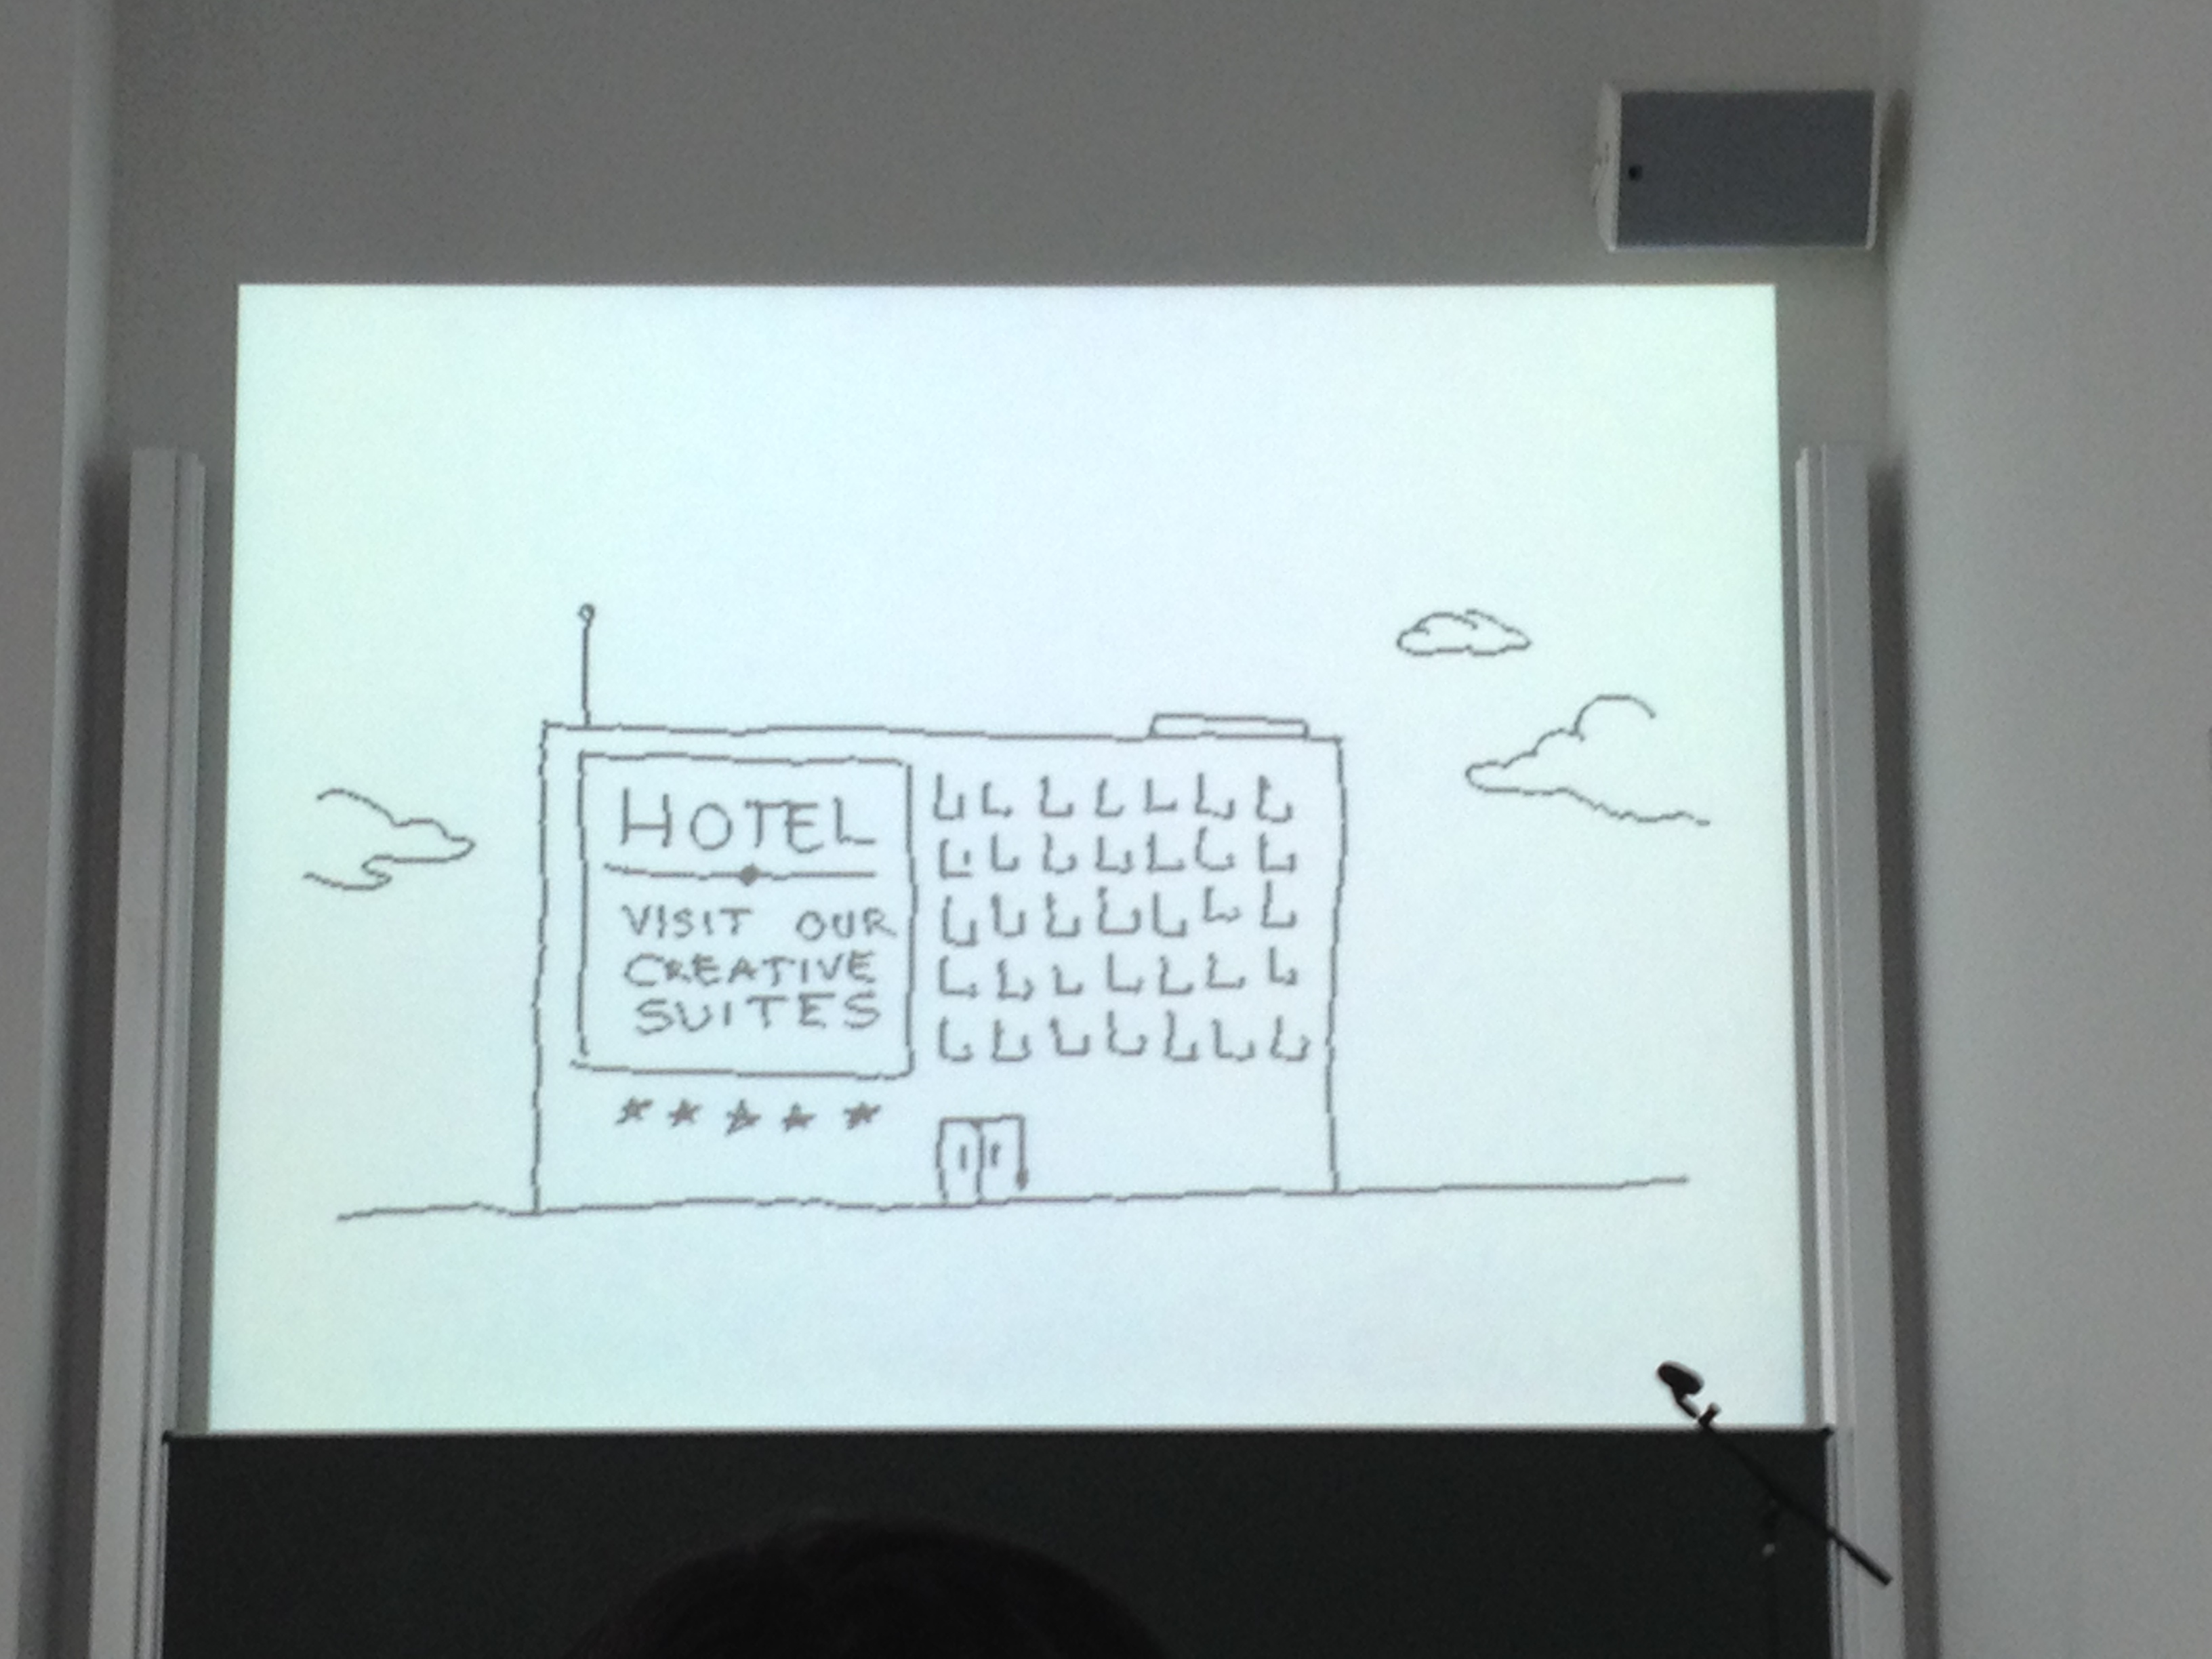 HOTEL
VISIT OUR
CREATIVE
SUITES